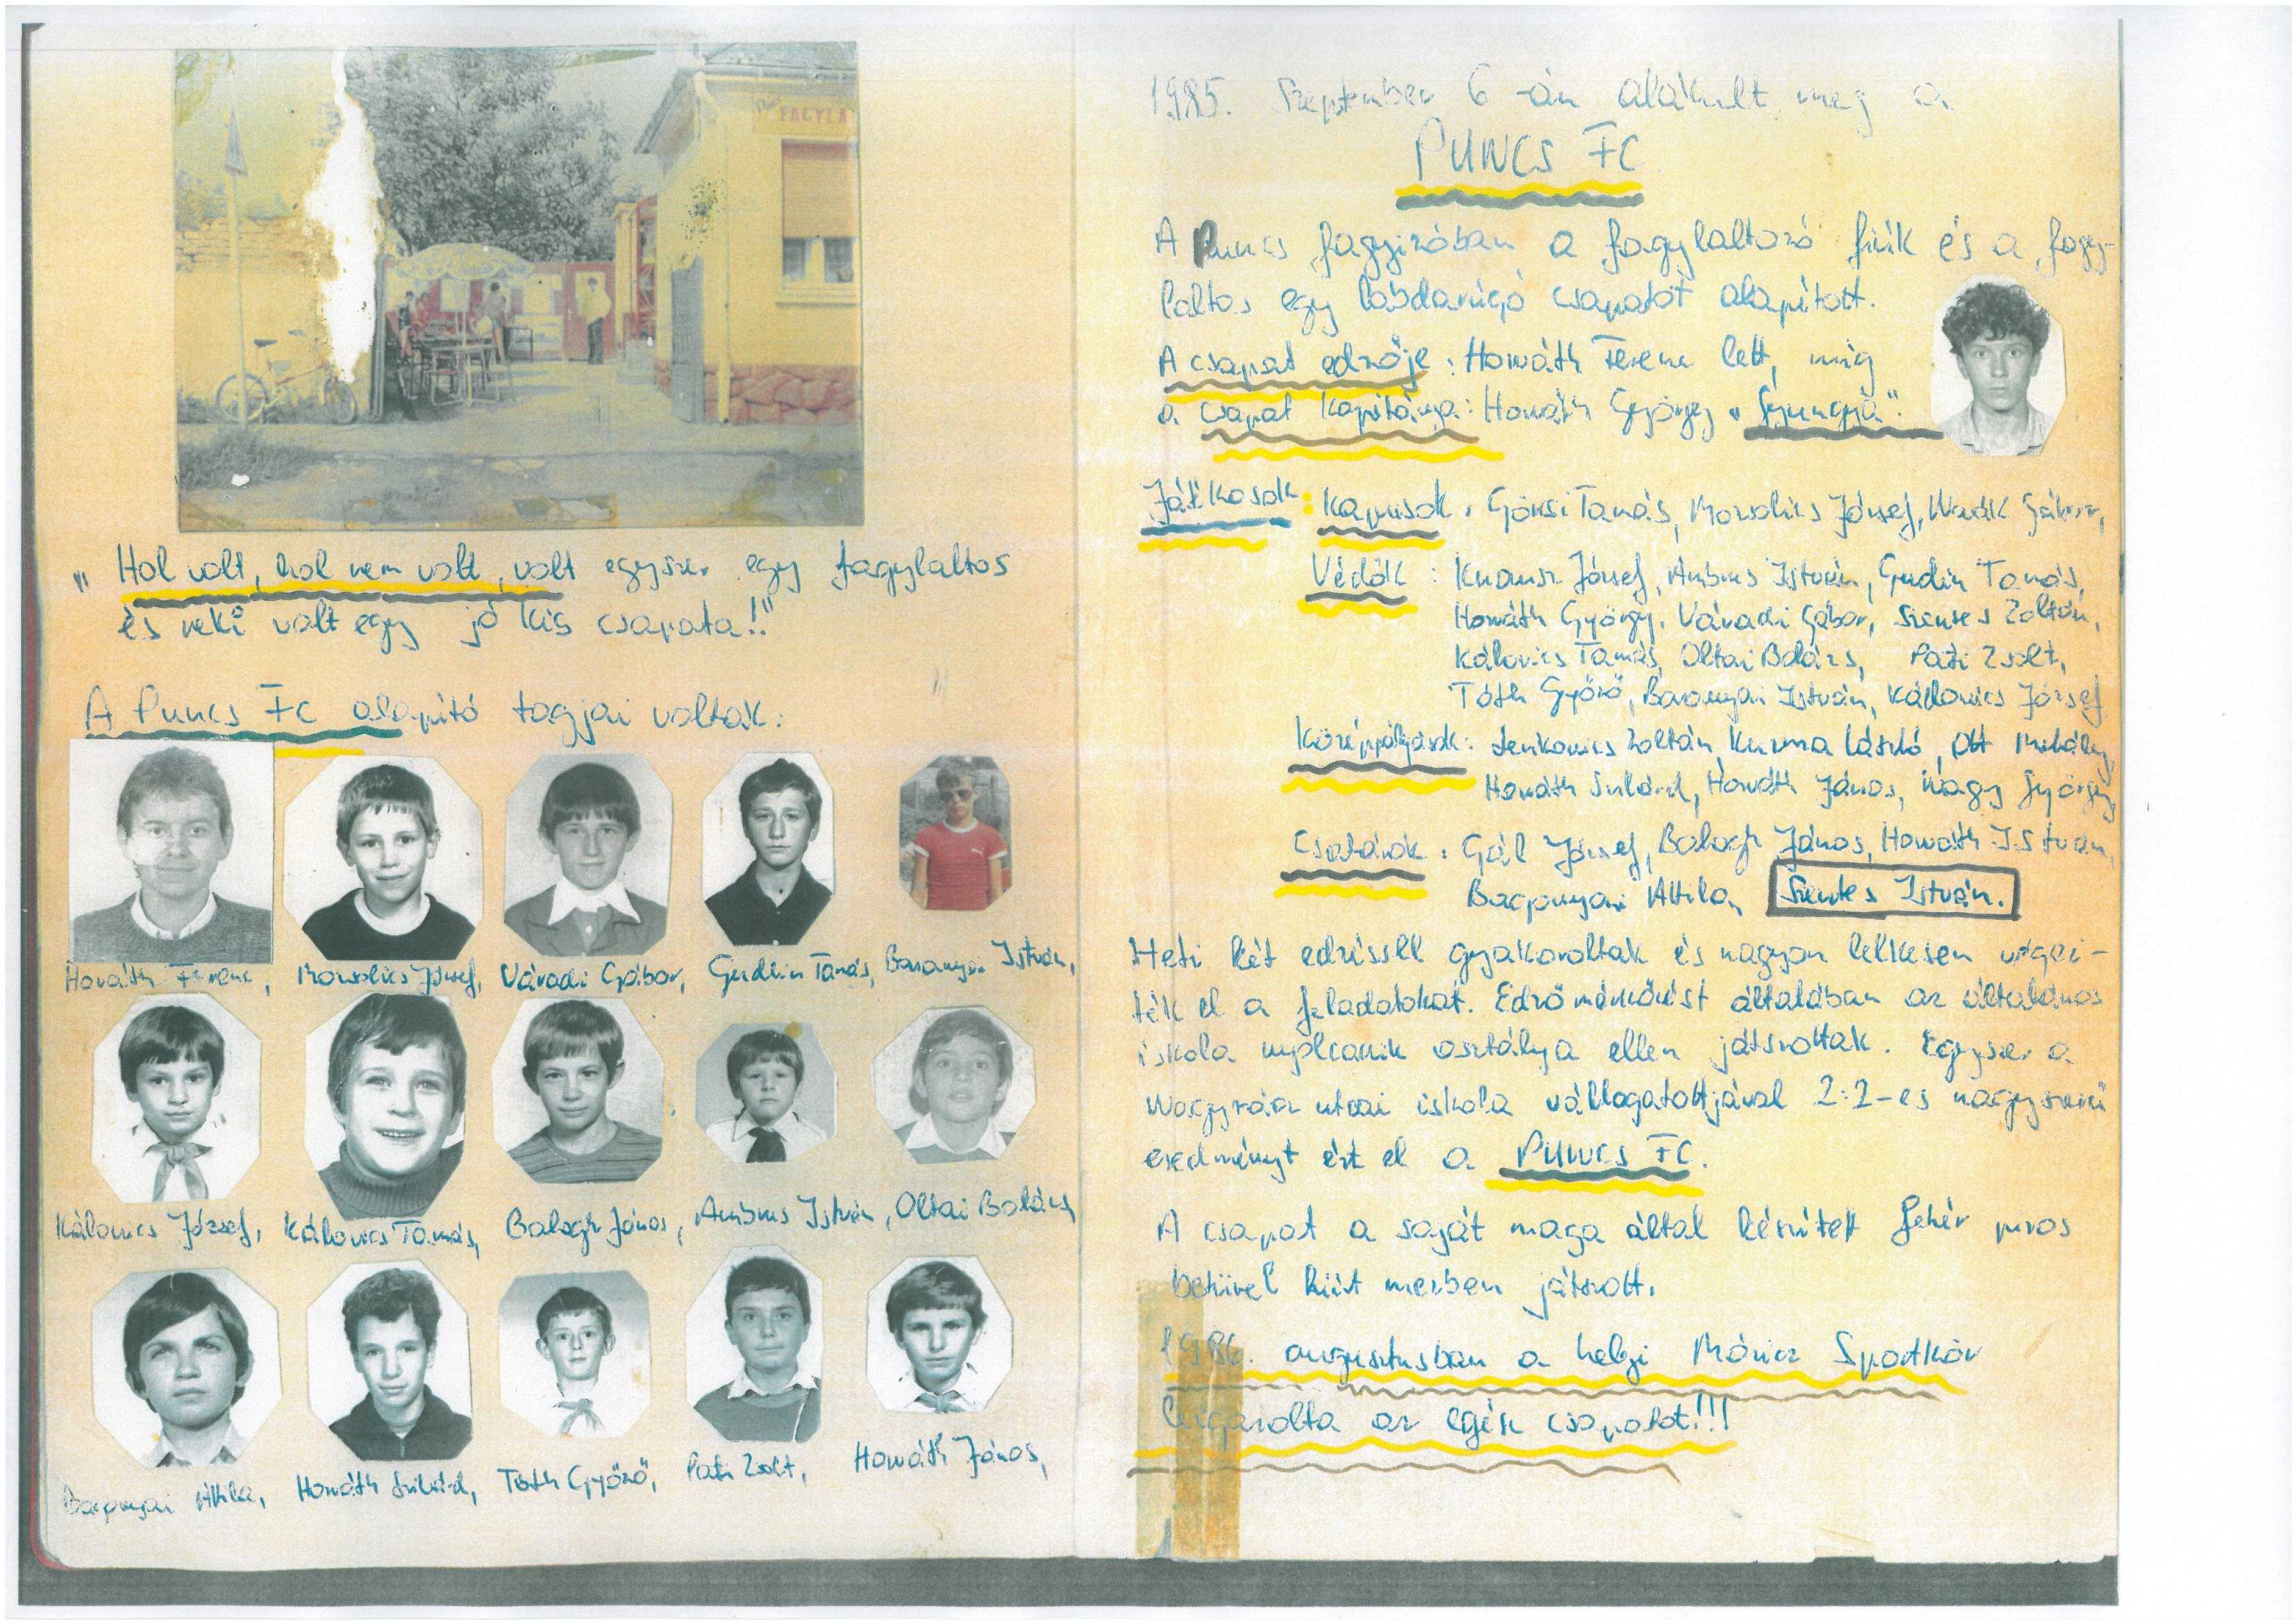 FAGYLA
„Hol volt, hol nem volt, volt egyszer egy fagylaltos
és neki volt egy jó kis csapata!!"
A Puncs FC alapító tagjai voltak:
Horváth Ferenc, Morsolics József, Váradi Gábor, Gudlin Tamás, Baranyai István,
Kálovics József, Kálovics Tamás, Balogh János, Ambrus István, Oltai Balázs,
Bacponyai Attila, Horváth Szilárd, Tóth Győző, Páti Zsolt, Horváth János,
1985. Szeptember 6-án alakult meg a
PUNCS FC
A Puncs fagyizóban a fagylaltozó fiúk és a fagy-
laltos egy labdarúgó csapatot alapított.
A csapat edzője: Horváth Ferenc lett, míg
a csapat kapitánya: Horváth György „Gyungyi".
Játékosok: Kapusok: Görcsi Tamás, Morsolics József, Gábor,
Védők: József, Ambrus István, Gudlin Tamás,
Horváth György, Váradi Gábor, Szentes Zoltán,
Kálovics Tamás, Oltai Balázs, Páti Zsolt,
Tóth Győző, Baranyai István, Kálovics József
Középpályások: Lenkovics Zoltán, Kuzma László, Ott Mihály,
Horváth Szilárd, Horváth János, Nagy György,
Csatárok: Gál József, Balogh János, Horváth István,
Bacponyai Attila, Szentes István.
Heti két edzéssel gyakoroltak és nagyon lelkesen végez-
ték el a feladatokat. Edzőmérkőzést általában az általános
iskola nyolcadik osztálya ellen játszottak. Egyszer a
utcai iskola válogatottjával 2:2-es nagyszerű
eredményt ért el a PUNCS FC.
A csapat a saját maga által készített fehér piros
betűvel kiírt mezben játszott.
1986. augusztusban a helyi Móricz Sportkör
leigazolta az egész csapatot!!!